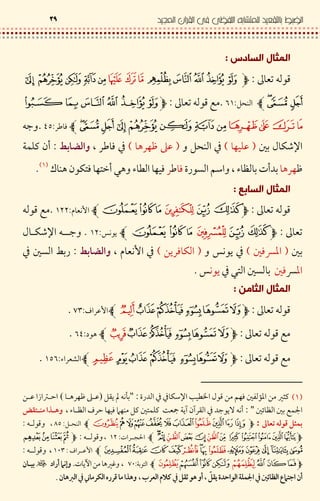 الضبط بالتقعيد للمتشابه اللفظي في القرآن المجيد ٢٩
المثال السادس :
قوله تعالى : ﴿ وَلَوْ يُؤَاخِذُ اللَّهُ النَّاسَ بِظُلْمِهِمْ مَا تَرَكَ عَلَيْهَا مِنْ دَابَّةٍ وَلَكِنْ يُؤَخِّرُهُمْ إِلَى
أَجَلٍ مُسَمًّى ﴾ النحل:٦١ .مع قوله تعالى : ﴿ وَلَوْ يُؤَاخِذُ اللَّهُ النَّاسَ بِمَا كَسَبُوا
مَا تَرَكَ عَلَى ظَهْرِهَا مِنْ دَابَّةٍ وَلَكِنْ يُؤَخِّرُهُمْ إِلَى أَجَلٍ مُسَمًّى ﴾ فاطر:٤٥ .وجه
الإشكال بين ( عليها ) في النحل و ( على ظهرها ) في فاطر ، والضابط : أن كلمة
ظهرها بدأت بالظاء ، واسم السورة فاطر فيها الطاء وهي أختها فتكون هناك (١).
المثال السابع :
قوله تعالى : ﴿ كَذَلِكَ زُيِّنَ لِلْكَافِرِينَ مَا كَانُوا يَعْمَلُونَ ﴾ الأنعام:١٢٢ .مع قوله
تعالى : ﴿ كَذَلِكَ زُيِّنَ لِلْمُسْرِفِينَ مَا كَانُوا يَعْمَلُونَ ﴾ يونس:١٢ . وجه الإشكال
بين ( المسرفين ) في يونس و ( الكافرين ) في الأنعام ، والضابط : ربط السين في
المسرفين بالسين التي في يونس .
المثال الثامن :
قوله تعالى : ﴿ وَلَا تَمَسُّوهَا بِسُوءٍ فَيَأْخُذَكُمْ عَذَابٌ أَلِيمٌ ﴾ الأعراف:٧٣ .
مع قوله تعالى : ﴿ وَلَا تَمَسُّوهَا بِسُوءٍ فَيَأْخُذَكُمْ عَذَابٌ قَرِيبٌ ﴾ هود:٦٤ .
مع قوله تعالى : ﴿ وَلَا تَمَسُّوهَا بِسُوءٍ فَيَأْخُذَكُمْ عَذَابُ يَوْمٍ عَظِيمٍ ﴾ الشعراء:١٥٦ .
(١) كثير من المؤلفين فهم من قول الخطيب الإسكافي في الدرة : "بأنه لم يقل (على ظهرها) احترازا عن
الجمع بين الظائين " : أنه لا يوجد في القرآن آية جمعت كلمتين كل منهما فيها حرف الظاء ، وهذا منتقض
بمثل قوله تعالى : ﴿ وَإِذَا رَأَى الَّذِينَ ظَلَمُوا الْعَذَابَ فَلَا يُخَفَّفُ عَنْهُمْ وَلَا هُمْ يُنْظَرُونَ ﴾ النحل:٨٥ ، وقوله :
﴿ يَا أَيُّهَا الَّذِينَ آمَنُوا اجْتَنِبُوا كَثِيرًا مِنَ الظَّنِّ إِنَّ بَعْضَ الظَّنِّ إِثْمٌ ﴾ الحجرات:١٢ ، وقوله : ﴿ ثُمَّ بَعَثْنَا مِنْ بَعْدِهِمْ
مُوسَى بِآيَاتِنَا إِلَى فِرْعَوْنَ وَمَلَئِهِ فَظَلَمُوا بِهَا فَانْظُرْ كَيْفَ كَانَ عَاقِبَةُ الْمُفْسِدِينَ ﴾ الأعراف:١٠٣ ، وقوله :
﴿ فَمَا كَانَ اللَّهُ لِيَظْلِمَهُمْ وَلَكِنْ كَانُوا أَنْفُسَهُمْ يَظْلِمُونَ ﴾ التوبة:٧٠ ، وغيرها من الآيات. وإنما أراد بيان
أن اجتماع الظائين في الجملة الواحدة يقل ، أو هو ثقل في كلام العرب ، وهذا ما قرره الكرماني في البرهان .